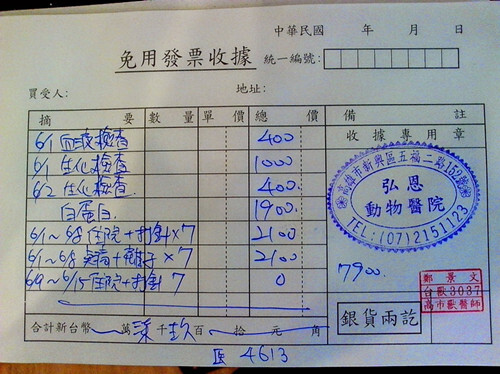 中華民國 年 月 日
免用發票收據
統一編號:
買受人: 地址:
摘要 數量 單價 總價 備註
6/1 血液檢查 400
6/1 生化檢查 1000
6/2 生化檢查 400
白蛋白 1900
6/1~6/8 住院+打針×7 2100
6/1~6/8 +離子×7 2100
6/9~6/15 住院+打針 7 0
合計新台幣 萬 柒 千 玖 百 拾 元 角
收據專用章
高雄市新興區五福二路152號
弘恩
動物醫院
TEL:(07)2151123
7900.
鄭景文
台獸3037
高市獸醫師
銀貨兩訖
4613